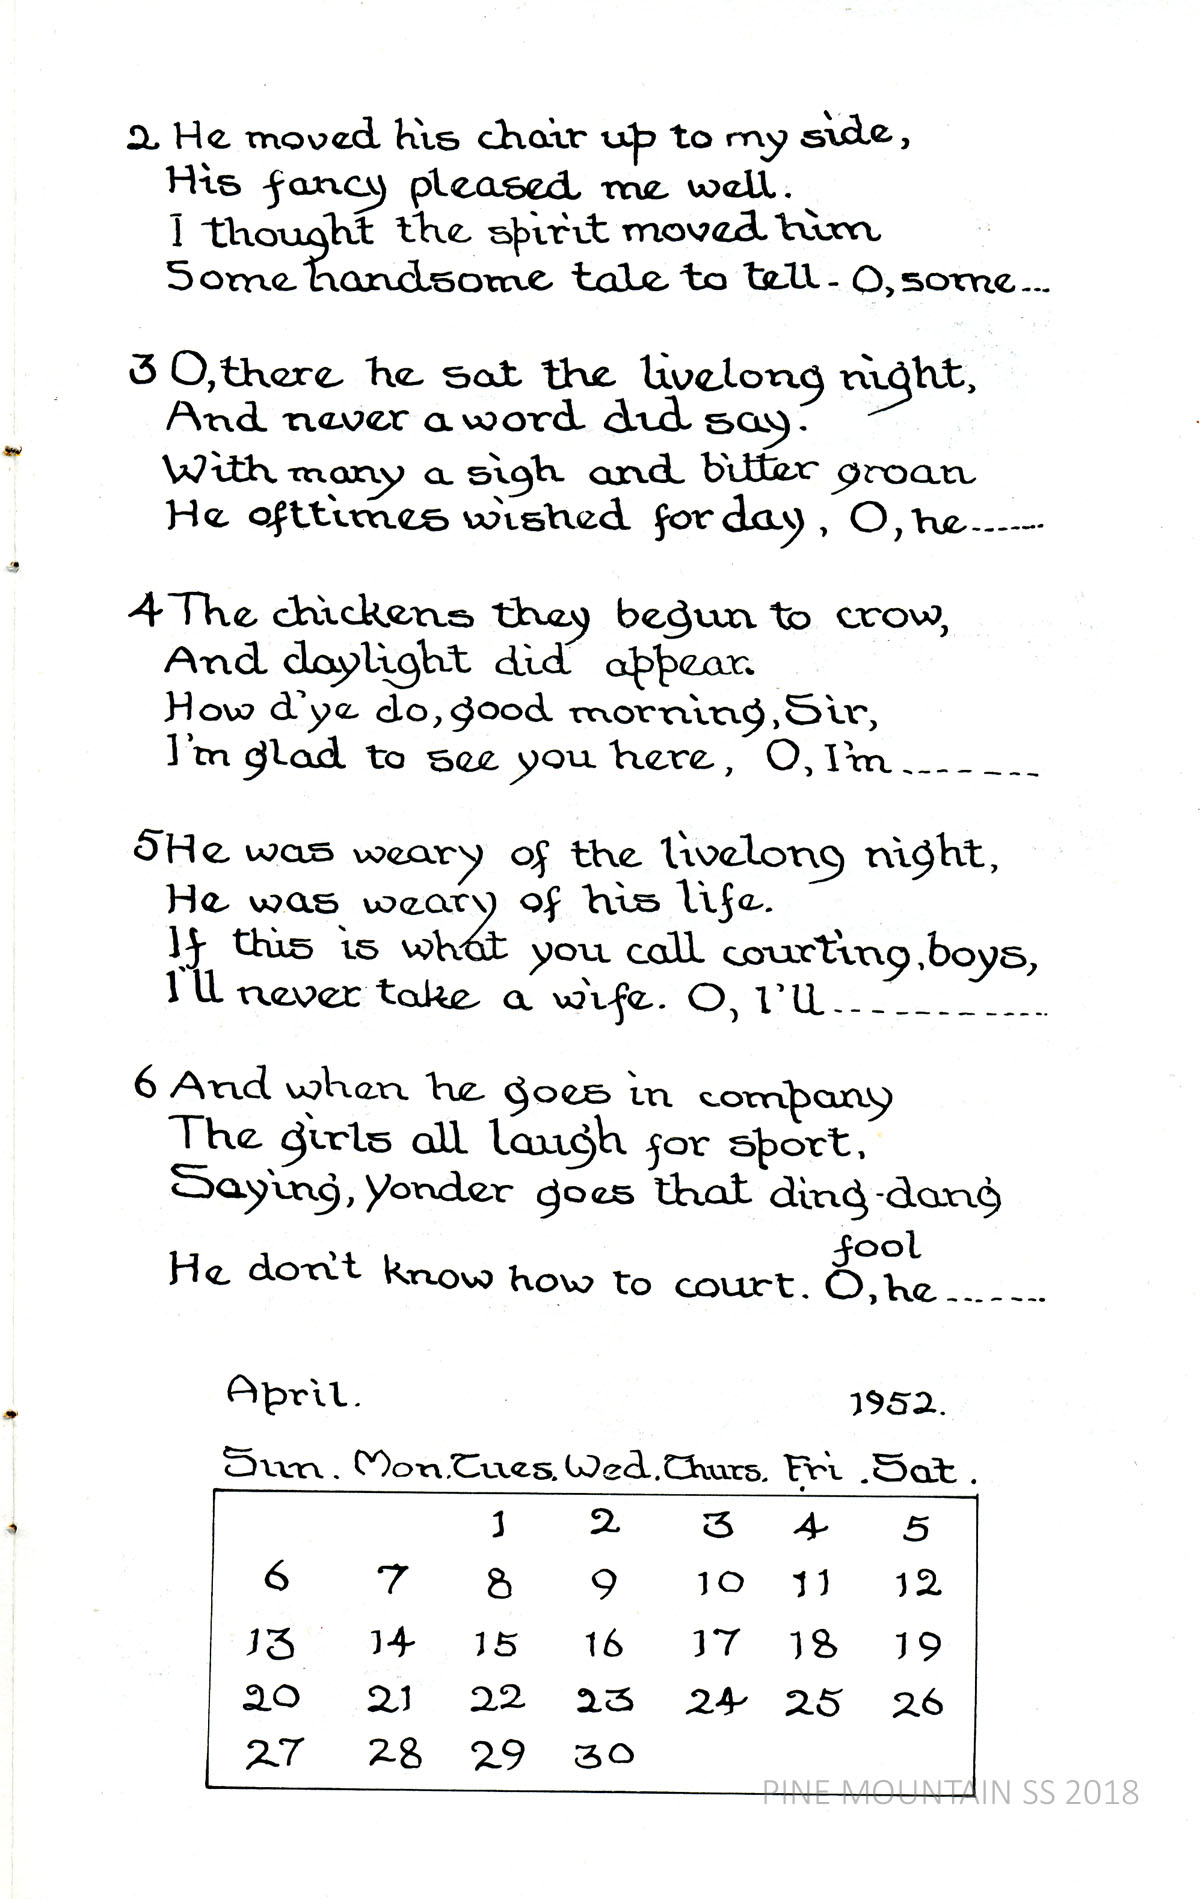 2 He moved his chair up to my side,
His fancy pleased me well.
I thought the spirit moved him
Some handsome tale to tell - O, some...
3 O, there he sat the livelong night,
And never a word did say.
With many a sigh and bitter groan
He ofttimes wished for day, O, he.......
4 The chickens they begun to crow,
And daylight did appear.
How d'ye do, good morning, Sir,
I'm glad to see you here, O, I'm........
5 He was weary of the livelong night,
He was weary of his life.
If this is what you call courting, boys,
I'll never take a wife. O, I'll.............
6 And when he goes in company
The girls all laugh for sport,
Saying, yonder goes that ding-dang
fool
He don't know how to court. O, he.......
April. 1952.
Sun. Mon. Tues. Wed. Thurs. Fri. Sat.
1 2 3 4 5
6 7 8 9 10 11 12
13 14 15 16 17 18 19
20 21 22 23 24 25 26
27 28 29 30
PINE MOUNTAIN SS 2018